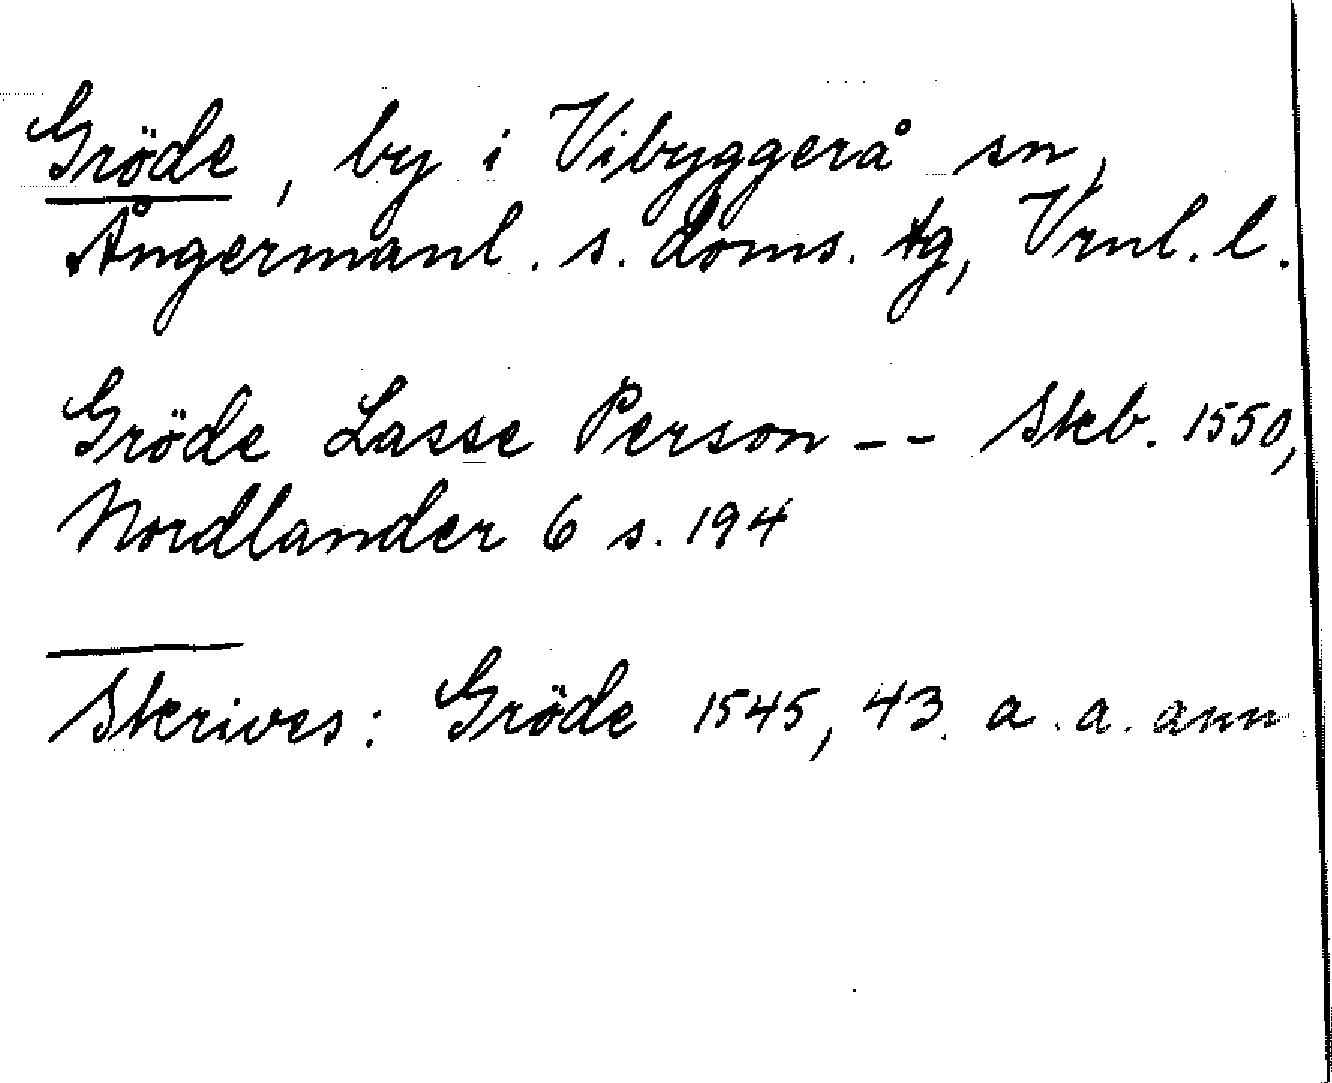 Gröde, by i Vibyggerå sn,
Ångermanl. s. doms. tg, Vrnl. l.
Gröde Lasse Person -- Skb. 1550,
Nordlander 6 s. 194
Skrives: Gröde 1545, 43. a. a. ann